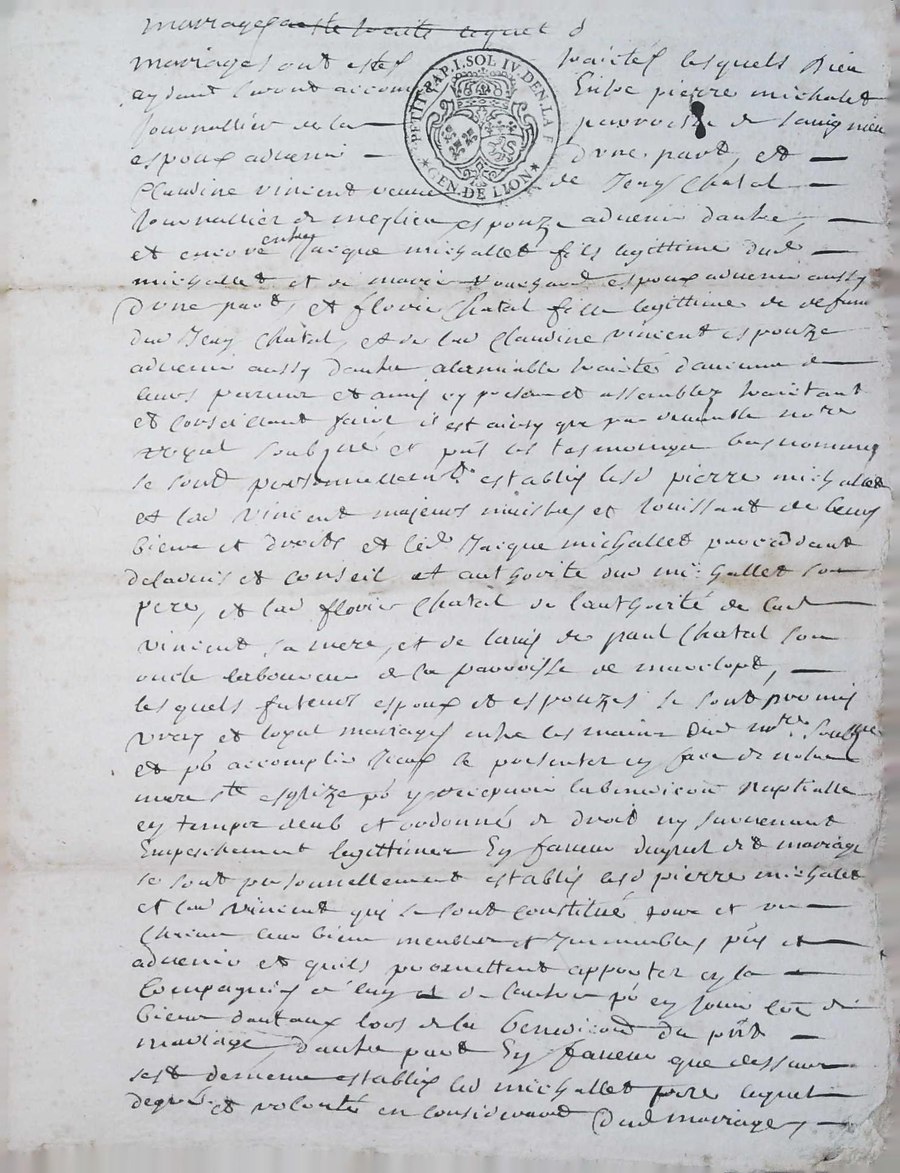 mariages a esté traité lequel d
mariages ont estes traités lesquels Dieu
aydant seront accom Entre pierre michalet
Journallier de la parroisse de
PETIT PAP. I. SOL IV. DEN. LA F
GEN. DE LION
espoux advenir — d'une part, et —
Claudine vincent veuve de Jeny Chatal —
Journallier de meylieu espouze advenir dautre, —
et encore entre Jacque michallet fils legittime dud —
michallet et de marie espoux advenir aussy
d'une part, et florie Chatal fille legittime de defunt
dud Jeny Chatal, et de lad Claudine vincent espouze
advenir aussy dautre traité
leurs parens et amis cy presen et assemblez traitant
et Conseillant faire il est ainsy que par devant le notre
royal soubsigné et pnt les tesmoings bas nommez
se sont personnellemt establis lesd pierre michallet
et lad vincent majeurs maistres et Jouissant de leurs
biens et droits et led Jacque michallet procedant
de lavis et conseil et authorité dud michallet son
pere, et lad florie Chatal de lauthorité de lad
vincent sa mere, et de lavis de paul Chatal son
oncle laboureur de la parroisse de —
lesquels futeurs espoux et espouzes se sont promis
vray et loyal mariages entre les mains dud notre soubsigné
et pr accomplir Iceux se presenter en face de notre
mere ste esglize pr y recepvoir la benediction Nuptialle
en temps deub et ordonné de droit ny survenant
Empeschement legittimes En faveur duquel dit mariage
se sont personnellement establis lesd pierre michallet
et lad vincent quy se sont constitué tous et un
Chacun leur biens meubles et Immeubles pns et
advenir et quils promettent apporter en la —
Compagnie de luny et de lautre pr en Jouir
biens dautaux lors de la benediction du pnt —
mariage, dautre part En faveur que dessus
sest de meme establis led michallet pere lequel
de gré et volonté en Consideraon dud mariage, —